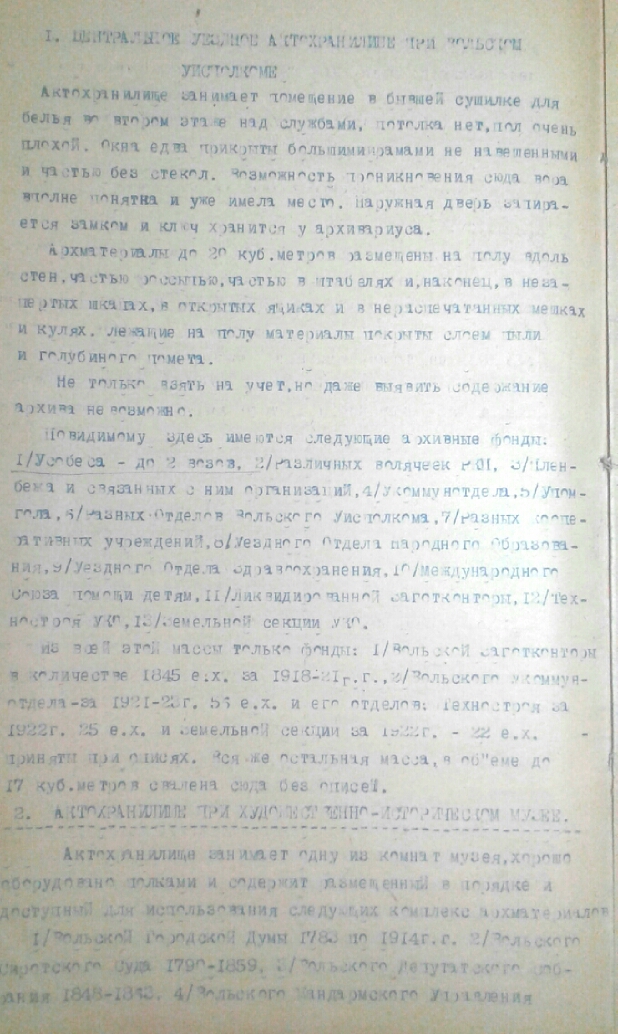 I. ЦЕНТРАЛЬНОЕ УЕЗДНОЕ АКТОХРАНИЛИЩЕ ПРИ ВОЛЬСКОМ
УИСПОЛКОМЕ
Актохранилище занимает помещение в бывшей сушилке для
белья во втором этаже над службами, потолка нет,пол очень
плохой. Окна едва прикрыты большими рамами не навешенными
и частью без стекол. Возможность проникновения сюда вора
вполне понятна и уже имела место. Наружная дверь запира-
ется замком и ключ хранится у архивариуса.
Архматериалы до 20 куб.метров размещены на полу вдоль
стен,частью россыпью,частью в штабелях и,наконец,в неза-
пертых шкапах,в открытых ящиках и в нераспечатанных мешках
и кулях. Лежащие на полу материалы покрыты слоем пыли
и голубиного помета.
Не только взять на учет,но даже выявить содержание
архива невозможно.
Повидимому здесь имеются следующие архивные фонды:
1/Усобеса - до 2 возов, 2/Различных волячеек РКП, 3/Плен-
бежа и связанных с ним организаций,4/Укоммунотдела,5/Упом-
гола,6/Разных Отделов Вольского Уисполкома,7/Разных коопе-
ративных учреждений,8/Уездного Отдела народного Образова-
ния,9/Уездного Отдела Здравоохранения,10/Международного
Союза помощи детям,11/Ликвидированной Заготконторы,12/Тех-
ностроя УИО,13/Земельной секции УИО.
Из всей этой массы только фонды: 1/Вольской Заготконторы
в количестве 1845 е.х. за 1918-21г.г.,2/Вольского Укоммун-
отдела-за 1921-23г. 56 е.х. и его отделов: Техностроя за
1922г. 25 е.х. и Земельной секции за 1922г. - 22 е.х. -
приняты при описях. Вся же остальная масса,в об"еме до
17 куб.метров свалена сюда без описей.
2. АКТОХРАНИЛИЩЕ ПРИ ХУДОЖЕСТВЕННО-ИСТОРИЧЕСКОМ МУЗЕЕ.
Актохранилище занимает одну из комнат музея,хорошо
оборудовано полками и содержит размещенный в порядке и
доступный для использования следующих комплекс архматериалов
1/Вольской Городской Думы 1783 по 1914г.г. 2/Вольского
Сиротского Суда 1790-1859, 3/Вольского Депутатского Соб-
рания 1848-1843, 4/Вольского Жандармского Управления